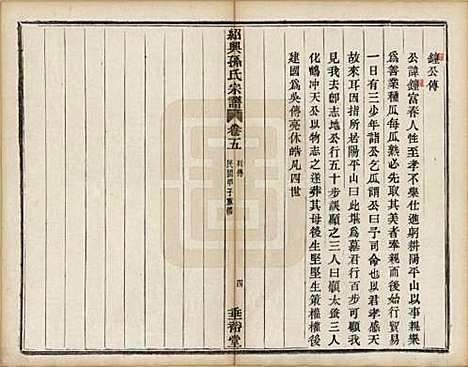 鍾公傳
公諱鍾富春人性至孝不樂仕進躬耕陽平山以事親樂
為善業種瓜每瓜熟必先取其美者奉親然後始行貿易
一日有三少年詣公乞瓜謂公曰司命也以君孝感天
故來耳因指所居陽平山曰此堪為墓君行百步可顧我
見我去即志地公行五十步誤顧之三人曰顧太蚤三人
化鶴冲天公以物志之遂葬其母後生堅堅生策權權後
建國為吳傳亮休皓凡四世
紹興孫氏宗譜
卷五
列傳
民國甲子重修
四
垂裕堂